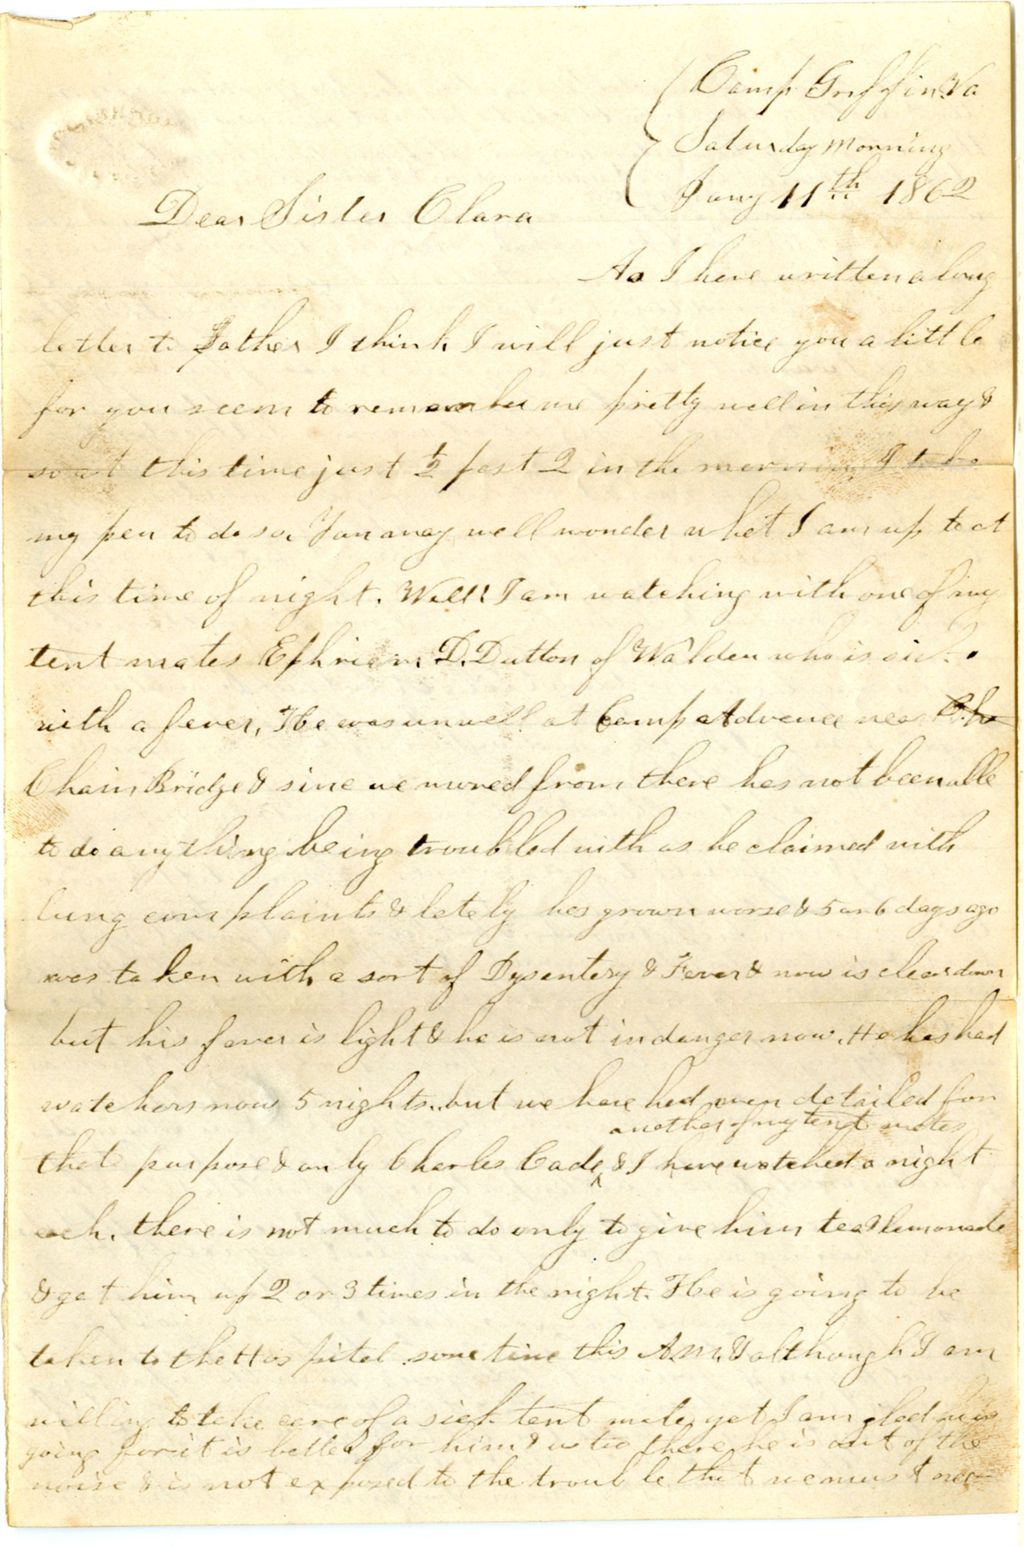 Camp Griffin Va
Saturday Morning
Jany 11th 1862
Dear Sister Clara
As I have written a long
letter to Father I think I will just notice you a little
for you seem to remember me pretty well in this way &
so at this time just ½ past 2 in the morning I take
my pen to do so. You may well wonder what I am up to at
this time of night. Well! I am watching with one of my
tent mates Ephriam D. Dutton of Walden who is sick
with a fever, He was unwell at Camp Advance near the
Chain Bridge & sine we moved from there has not been able
to do anything being troubled with as he claimed with
lung complaints & lately has grown worse & 5 or 6 days ago
was taken with a sort of Dysentery & Fever & now is clear down
but his fever is light & he is not in danger now. He has had
watchers now 5 nights. but we have had men detailed for
another of my tent mates
that purpose & only Charles Cade & I have watched a night
each. there is not much to do only to give him tea & lemonade
& get him up 2 or 3 times in the night. He is going to be
taken to the Hospital sometime this A.M. & although I am
willing to take care of a sick tent mate, yet I am glad he is
going for it is better for him & us too there he is out of the
noise & is not exposed to the trouble that we must nec-